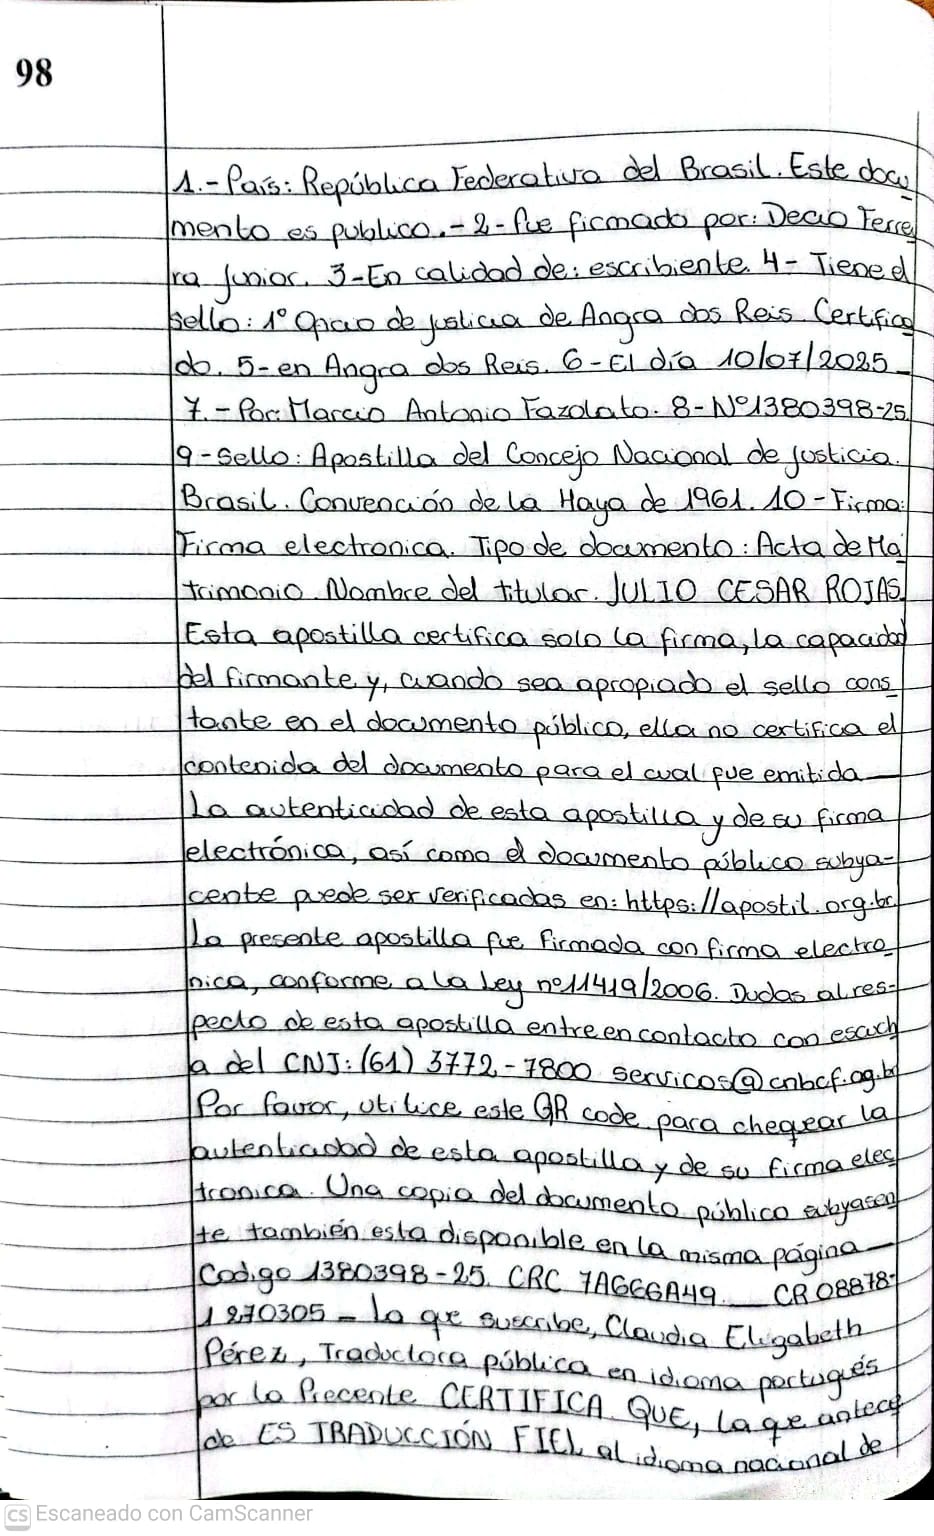 98
1.- País: República Federativa del Brasil. Este docu
mento es publico.- 2- fue firmado por: Decio Ferrei
ra Junior. 3-En calidad de: escribiente. 4- Tiene el
sello: 1° de justicia de Angra dos Reis. Certifica
do. 5- en Angra dos Reis. 6- El día 10/07/2025
7.- Por: Marcio Antonio Fazolato. 8- N°1380398-25.
9-Sello: Apostilla del Concejo Nacional de Justicia.
Brasil. Convención de la Haya de 1961. 10- Firma:
Firma electronica. Tipo de documento: Acta de Ma
trimonio. Nombre del titular. JULIO CESAR ROJAS.
Esta apostilla certifica solo la firma, la capacidad
del firmante y, cuando sea apropiado el sello cons
tante en el documento público, ella no certifica el
contenida del documento para el cual fue emitida—
La autenticidad de esta apostilla y de su firma
electrónica, así como el documento público subya-
cente puede ser verificadas en: https://apostil.org.br.
La presente apostilla fue firmada con firma electro
nica, conforme a la Ley n°11419/2006. Dudas al res-
pecto de esta apostilla entre en contacto con escuch
a del CNJ: (61) 3772-7800 servicos@cnbcf.og.br
Por favor, utilice este QR code para chequear la
autenticidad de esta apostilla y de su firma elec
tronica. Una copia del documento público subyasen
te también esta disponible en la misma página—
Codigo 1380398-25. CRC 7AGGGA49.— CR08878-
1270305 - La que suscribe, Claudia Elizabeth
Pérez, Traductora pública en idioma portugués
por la Precente CERTIFICA QUE, la que antece
de ES TRADUCCIÓN FIEL al idioma nacional de
CS Escaneado con CamScanner